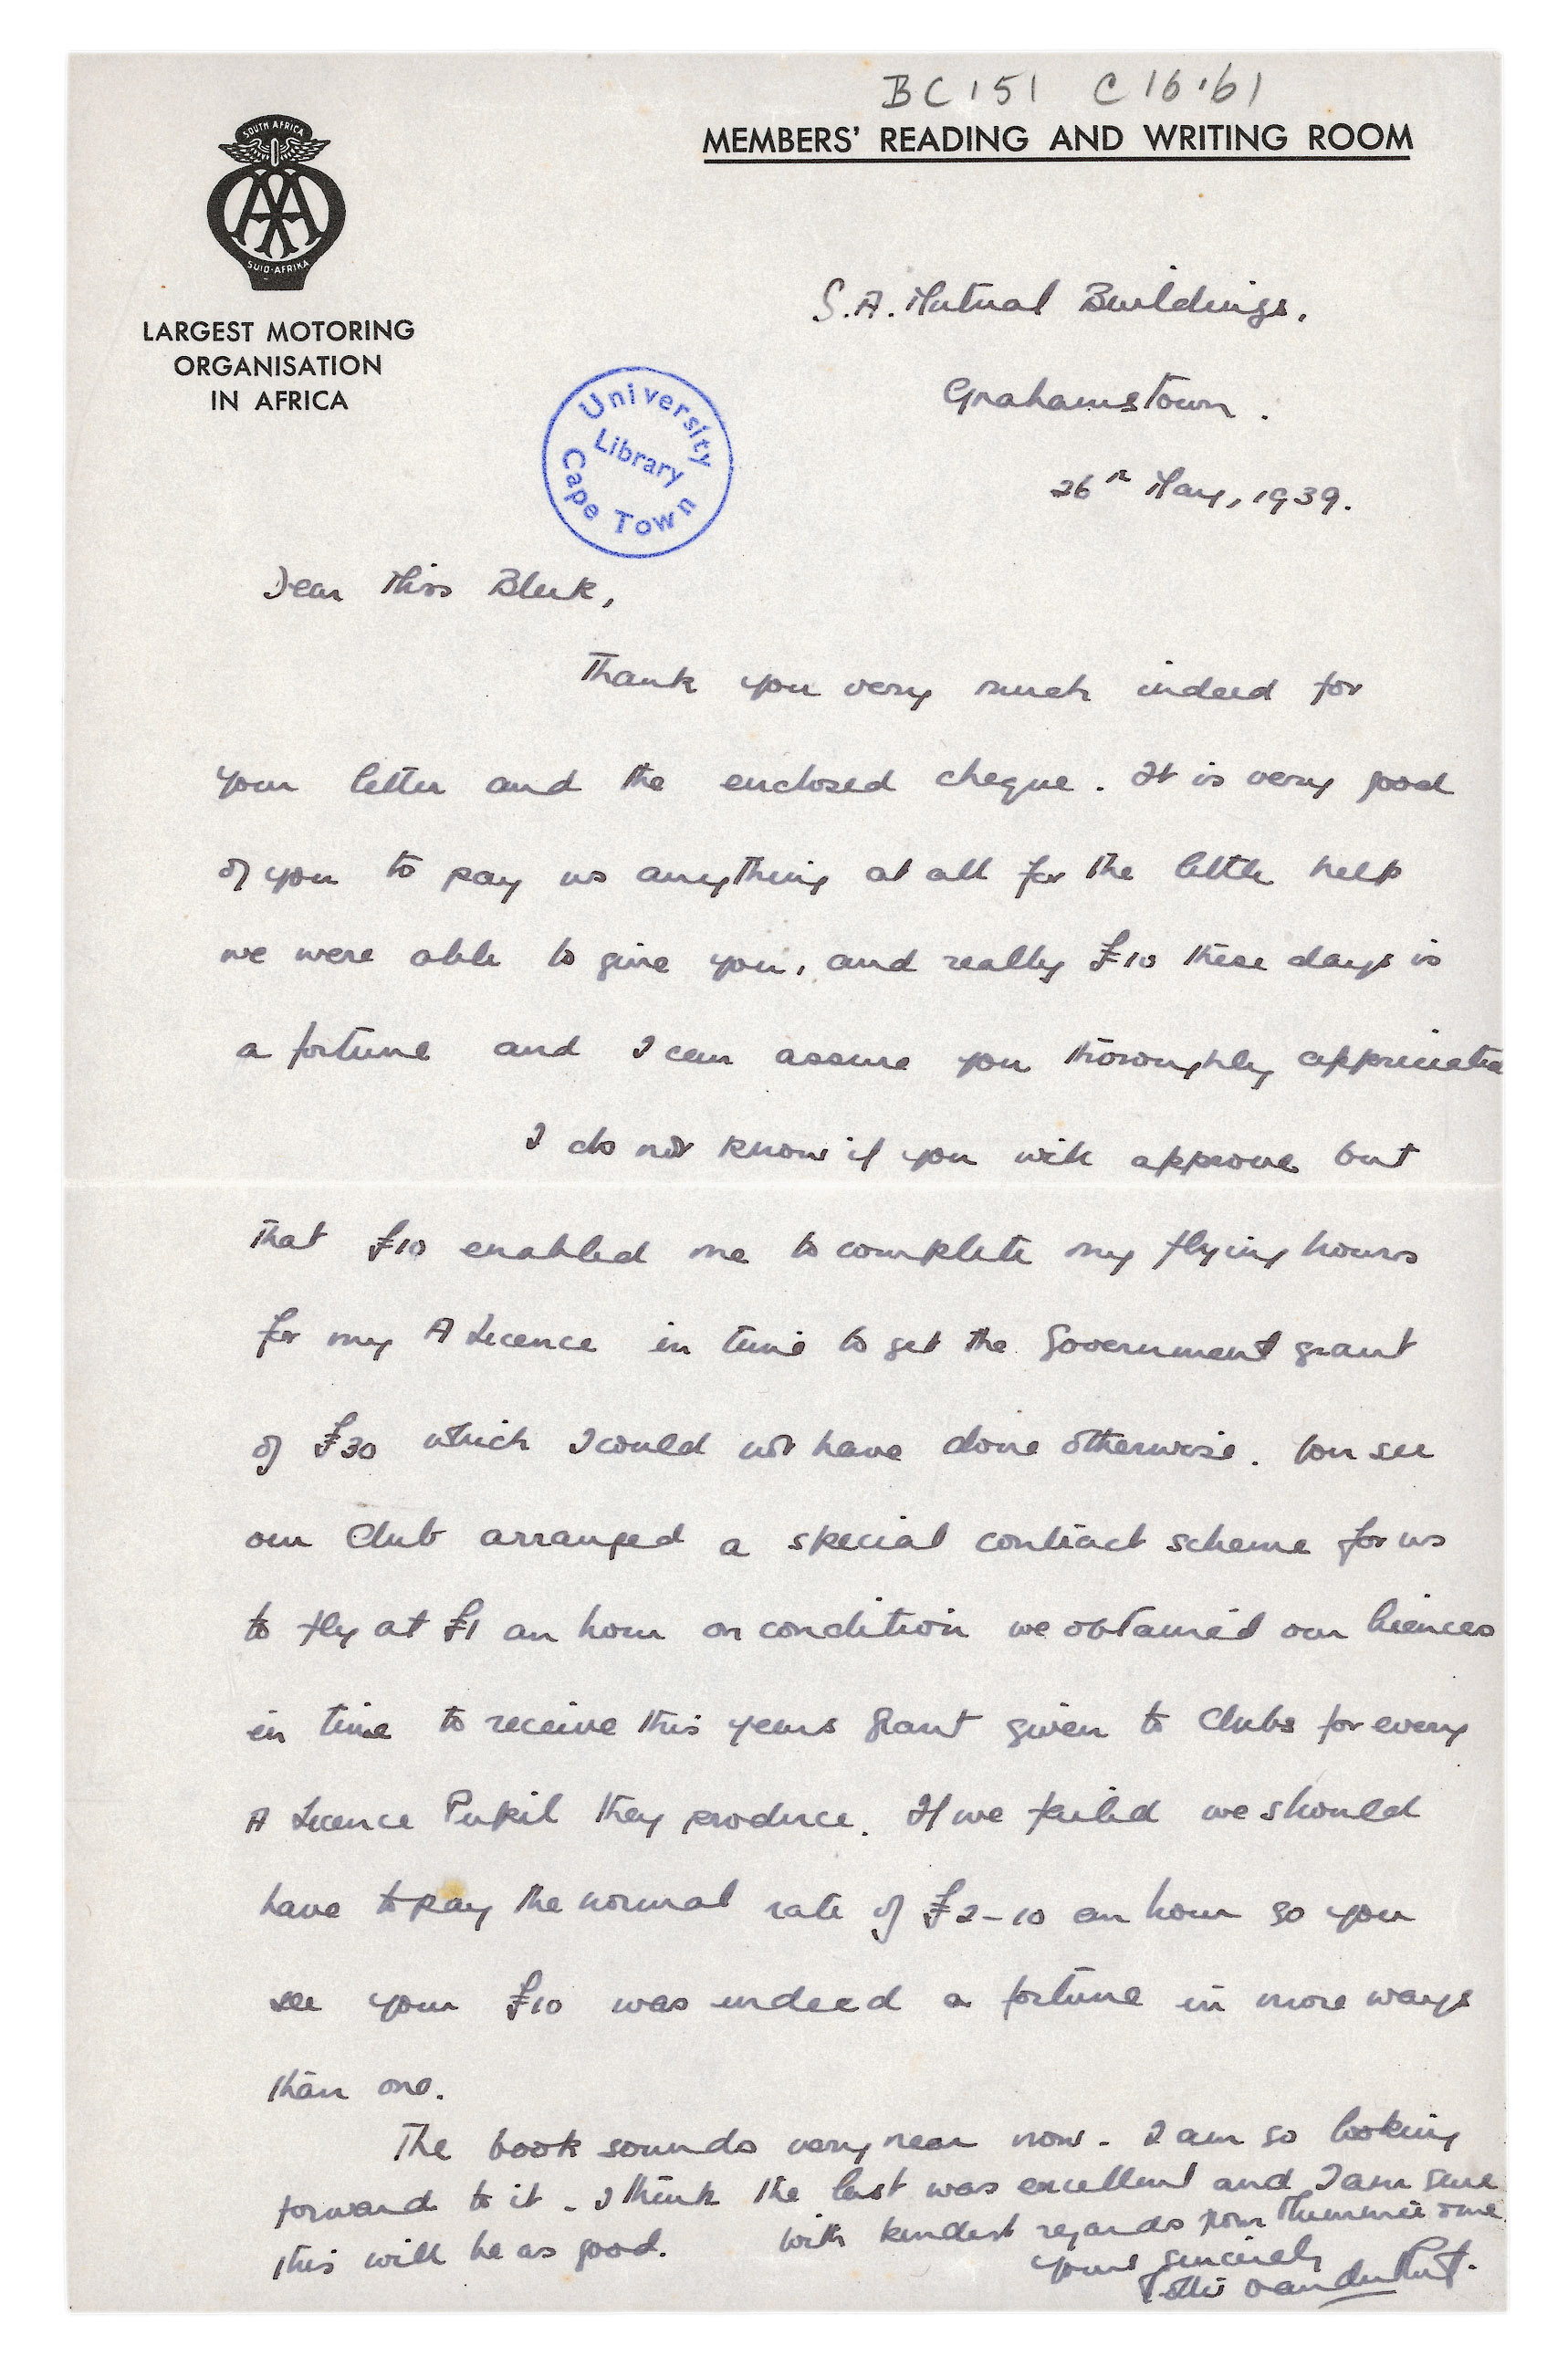 BC 151 C16.61
MEMBERS' READING AND WRITING ROOM
SOUTH AFRICA
AA
SUID-AFRIKA
LARGEST MOTORING
ORGANISATION
IN AFRICA
University
Library
Cape Town
S.A. Mutual Buildings,
Grahamstown.
26th May, 1939.
Dear Miss Bleek,
Thank you very much indeed for
your letter and the enclosed cheque. It is very good
of you to pay us anything at all for the little help
we were able to give you, and really £10 these days is
a fortune and I can assure you thoroughly appreciated
I do not know if you will approve but
that £10 enabled me to complete my flying hours
for my A Licence in time to get the Government grant
of £30 which I could not have done otherwise. You see
our Club arranged a special contract scheme for us
to fly at £1 an hour on condition we obtained our licences
in time to receive this years Grant given to Clubs for every
A Licence Pupil they produce. If we failed we should
have to pay the normal rate of £2-10 an hour so you
see your £10 was indeed a fortune in more ways
than one.
The book sounds very near now. I am so looking
forward to it. I think the last was excellent and I am sure
this will be as good. With kindest regards from Mummie & me
Yours sincerely
van der Riet.